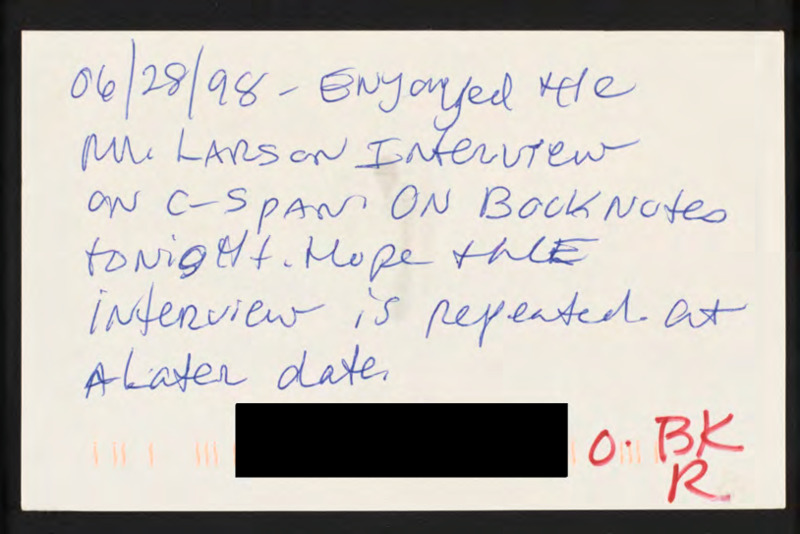 06/28/98 - Enjoyed the
Mr. LARSON INterview
ON C-SPAN ON BOOKNotes
toNight. Hope thE
iNterview is repeated at
A Later date.
O. BK
R